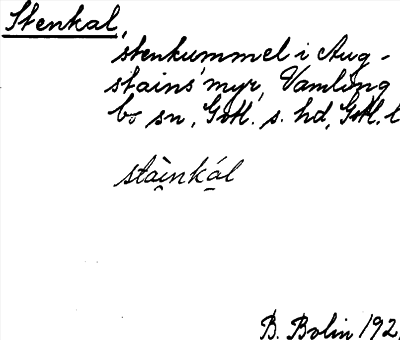 Stenkal,
stenkummel i Aug-
stains myr, Vamling
bo sn, Gotl. s. hd, Gotl. l
stàinkál
B. Bolin 192